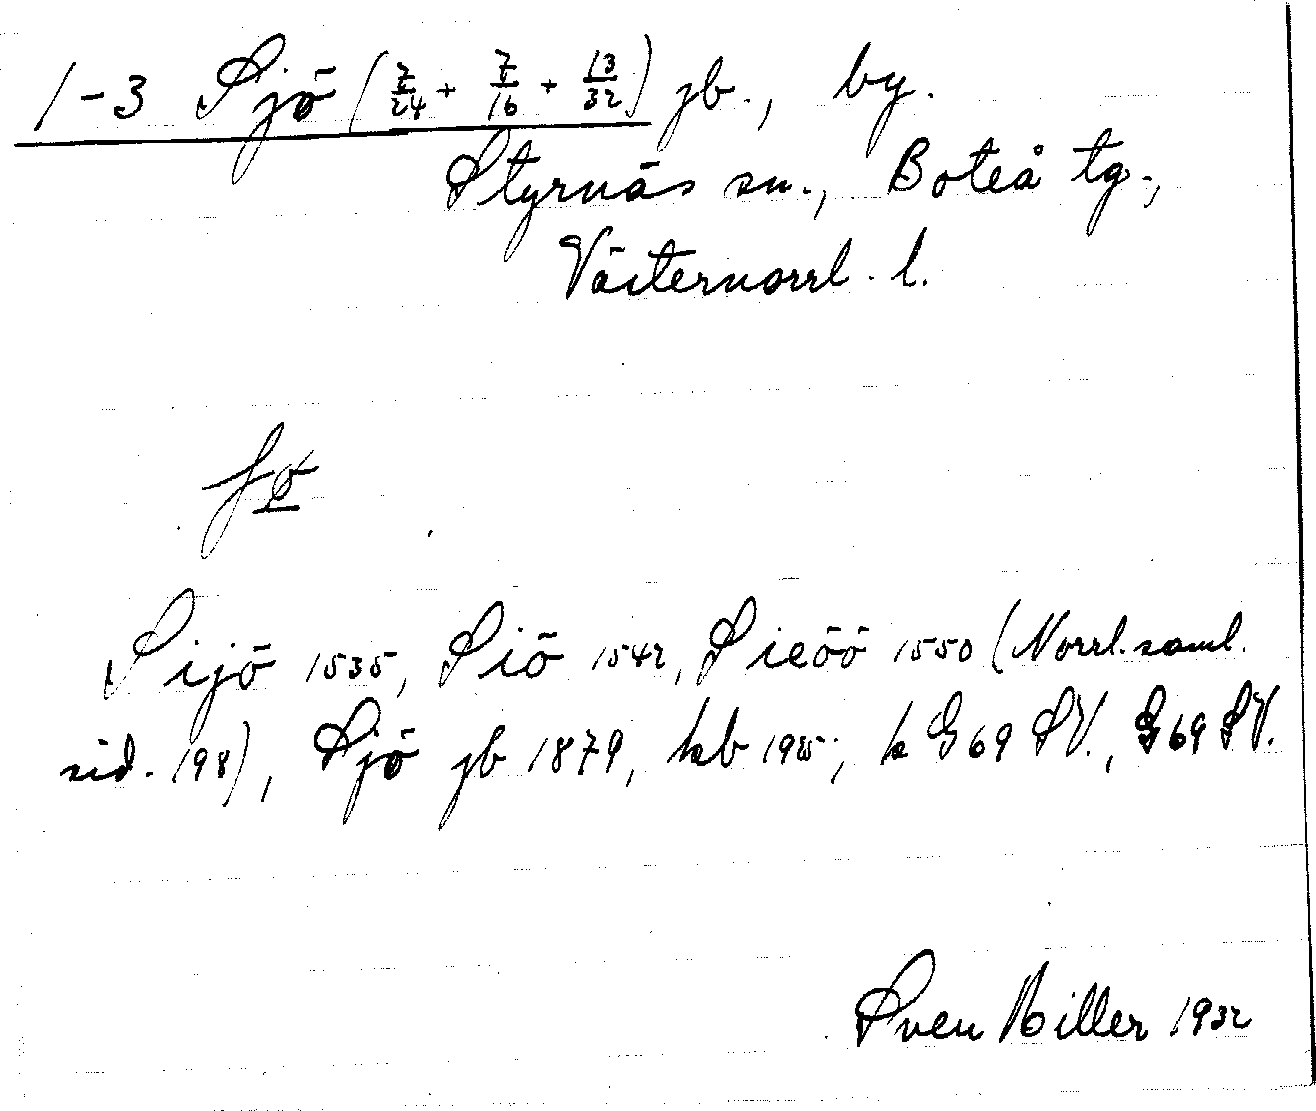 1-3 Sjö (7/24 + 7/16 + 13/32) jb., by.
Styrnäs sn., Boteå tg.,
Västernorrl. l.
ʃø
Sijö 1535, Siö 1542, Sieöö 1550 (Norrl. saml.
sid. 198), Sjö jb 1879, kb 1925; k G69 SV., G69 SV.
Sven Hiller 1932